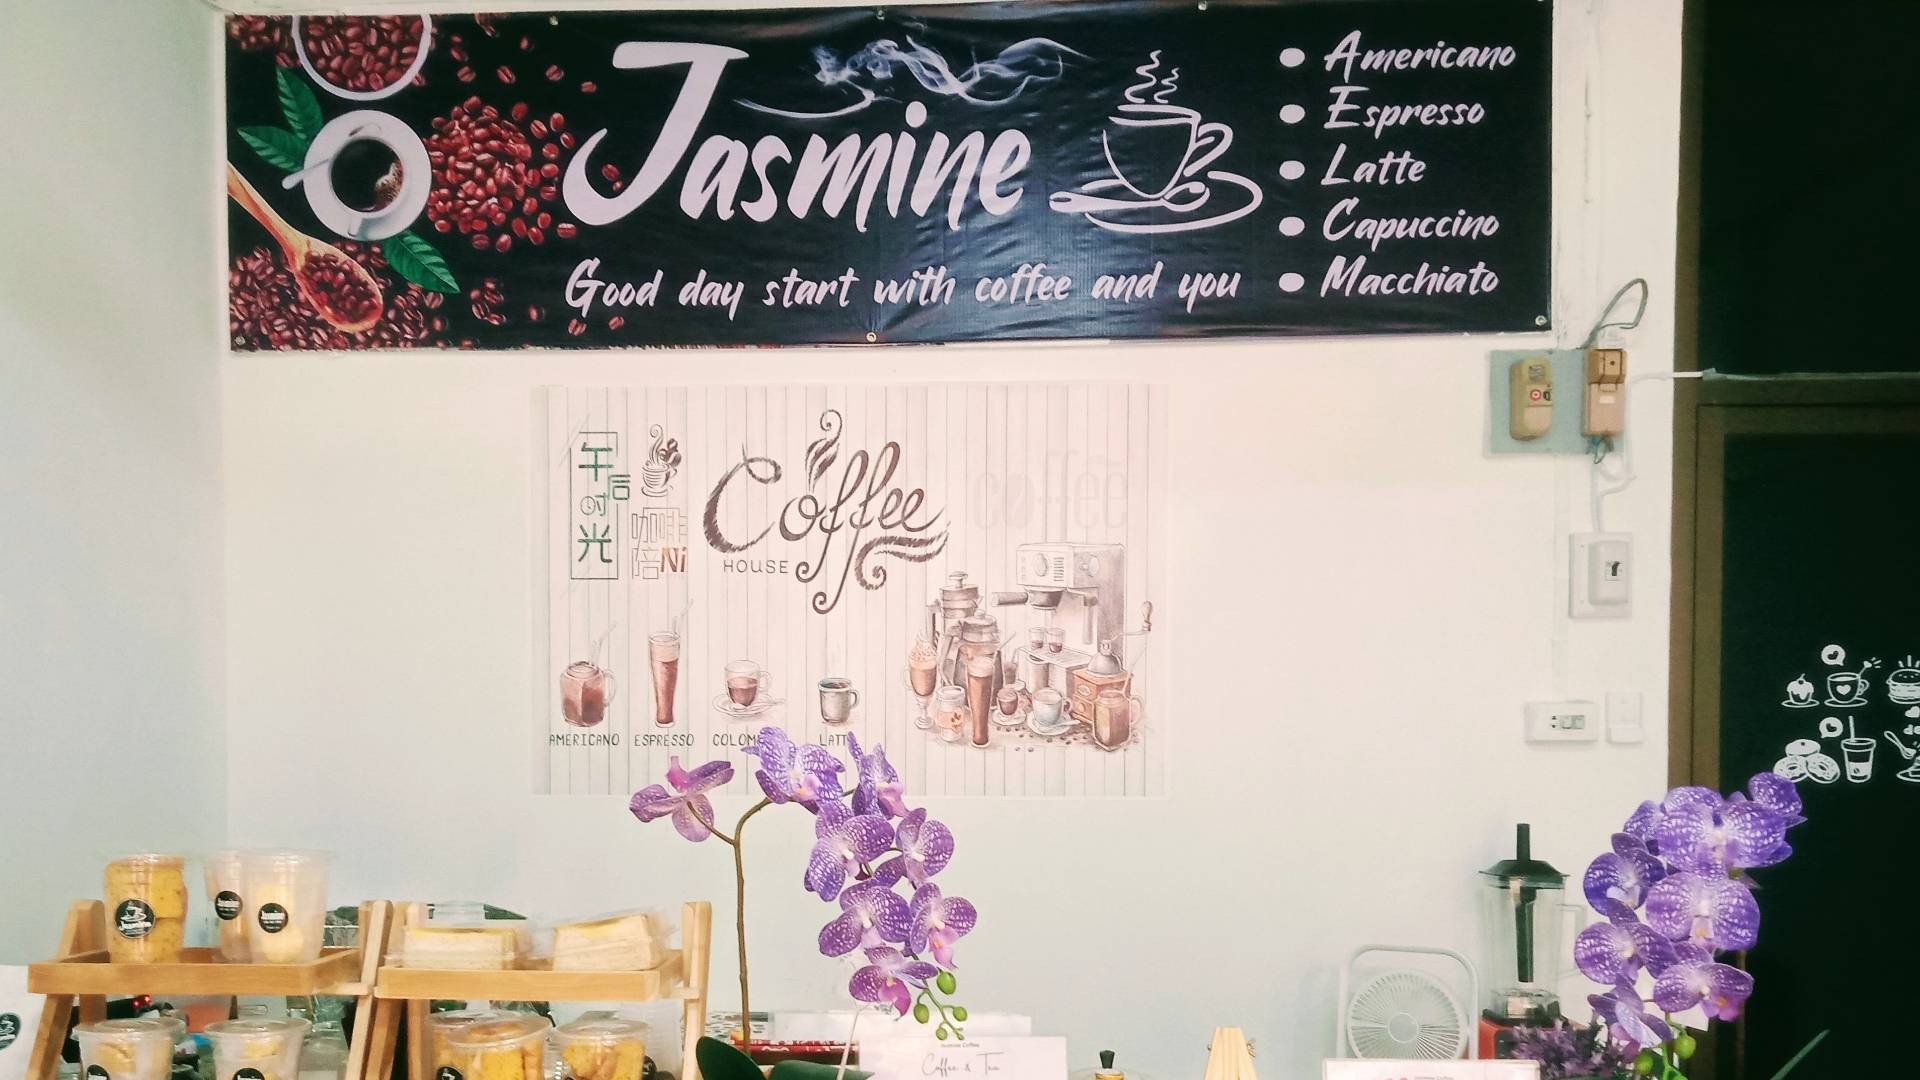 Jasmine
Good day start with coffee and you
Americano
Espresso
Latte
Capuccino
Macchiato
午后
时
光
咖啡
陪Ni
Coffee
HOUSE
coffee
AMERICANO
ESPRESSO
COLOM
LATT
Jasmine
Jasmine
Jasmine
Jasmine Coffee
Coffee & Tea